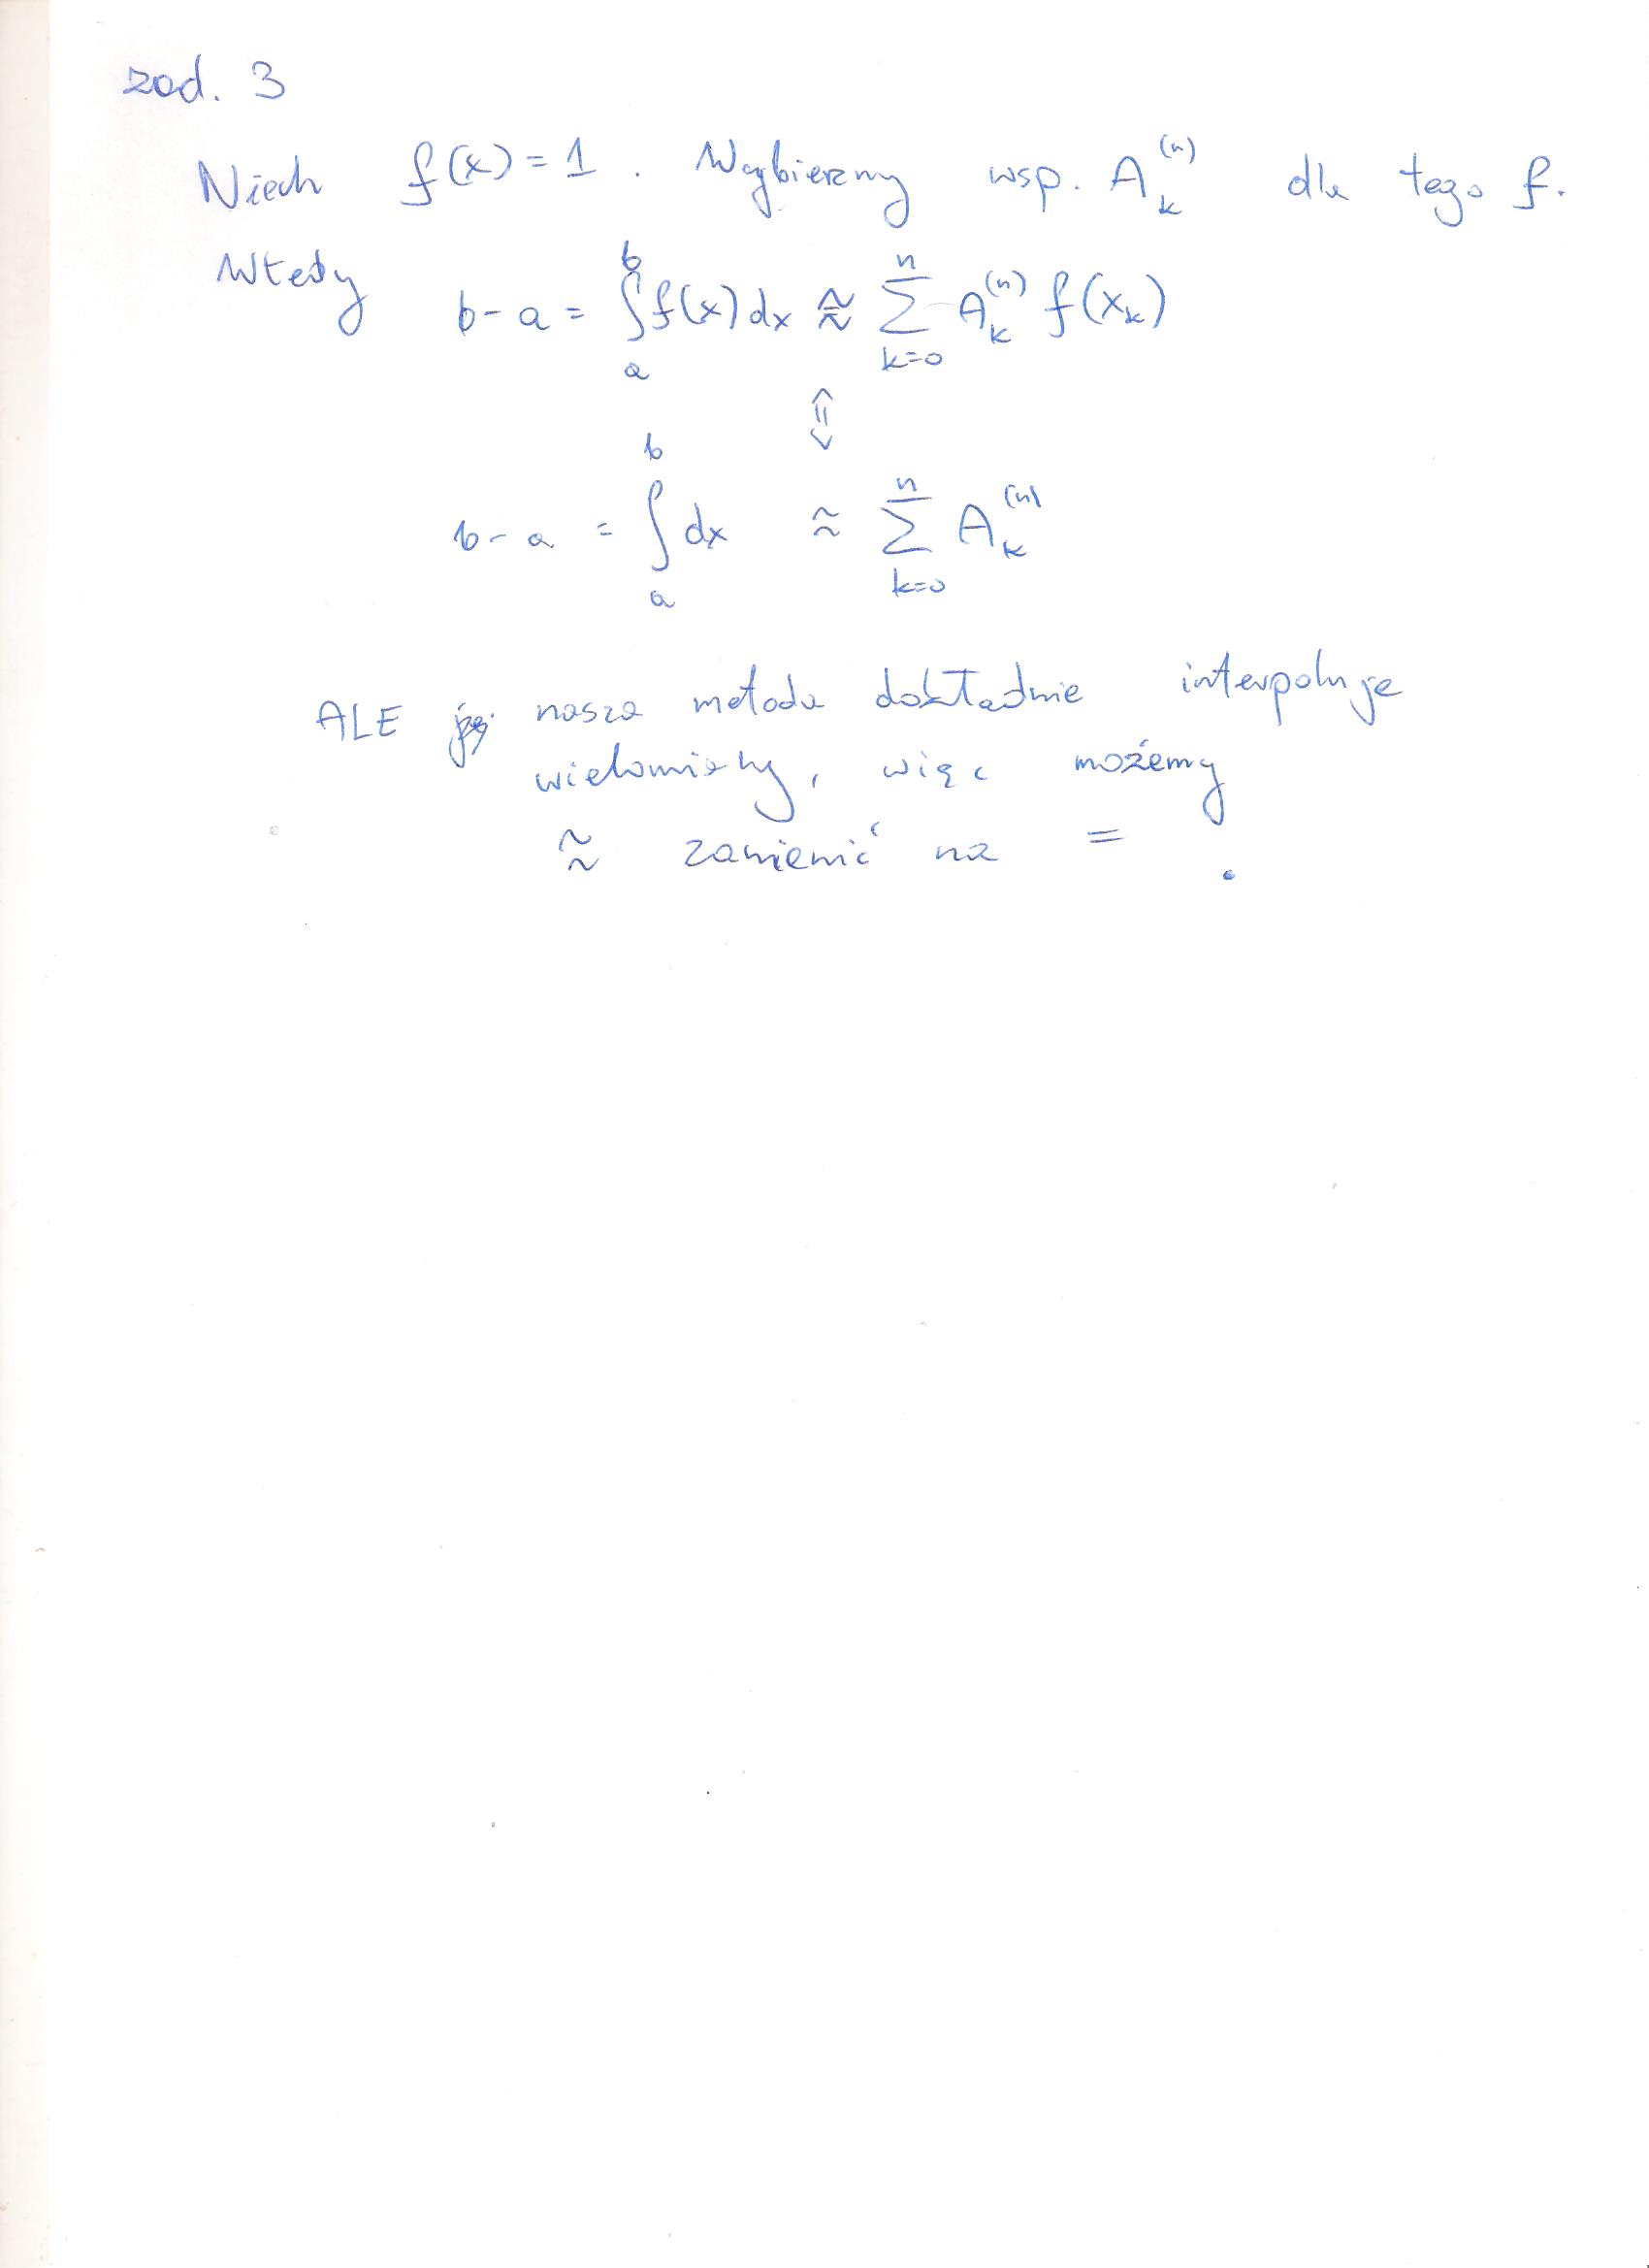 zad. 3
Niech f(x) = 1. Wybierzmy wsp. A_k^(n) dla tego f.
Wtedy b - a = ∫_a^b f(x) dx ≈ ∑_{k=0}^n A_k^(n) f(x_k)
⇕
b - a = ∫_a^b dx ≈ ∑_{k=0}^n A_k^(n)
ALE nasza metoda dokładnie interpoluje
wielomiany, więc możemy
≈ zamienić na = .